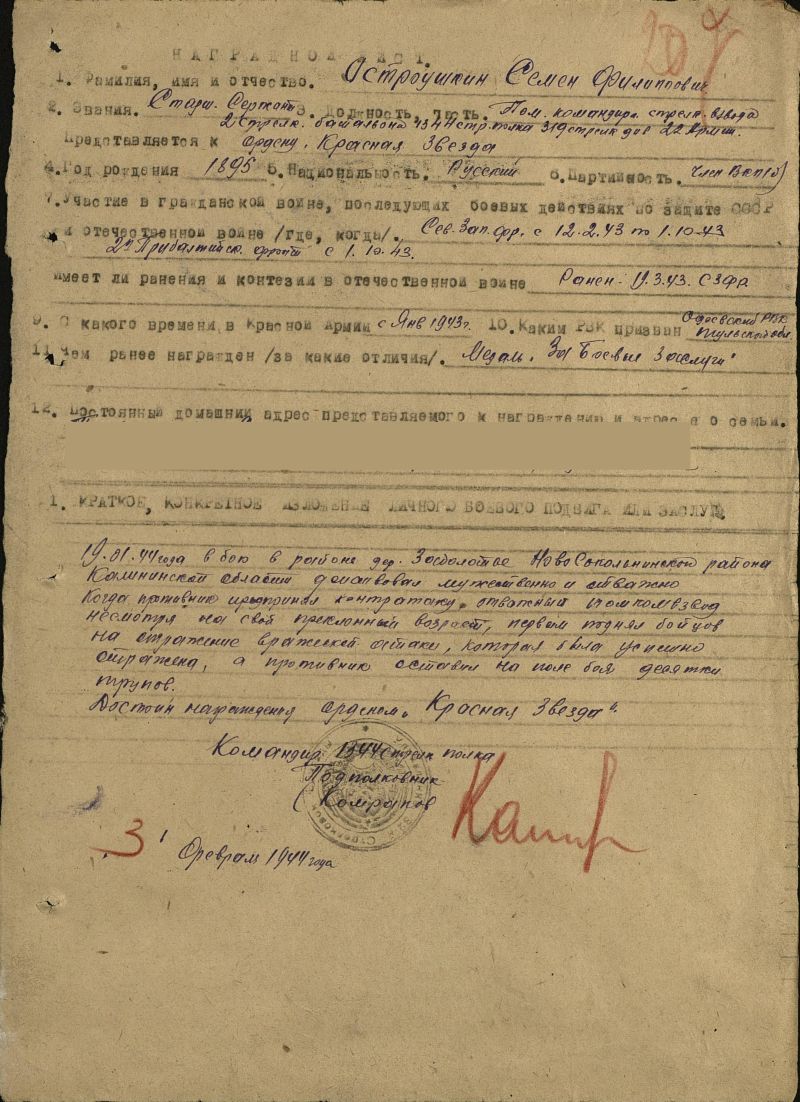 НАГРАДНОЙ ЛИСТ.
1. Фамилия, имя и отчество. Остроушкин Семен Филиппович
2. Звания. Старш. Сержант 3. Должность, часть. Пом. командира стрелк. взвода
2 Стрелк. батальона 1344 стр. полка 319 стрелк див 22 Армии.
Представляется к ордену „Красная Звезда
4. Год рождения 1895 5. Национальность. Русский 6. Партийность. член ВКП(б)
7. Участие в гражданской войне, последующих боевых действиях по защите СССР
и отечественной войне /где, когда/. Сев. Зап. фр. с 12.2.43 по 1.10.43
2й Прибалтийск. фронт с 1.10.43.
имеет ли ранения и контезии в отечественной войне Ранен - 19.3.43. СЗФр
9. С какого времени в Красной Армии с Янв 1943г. 10. Каким РВК призван Одоевский РВК
Тульской обл.
11. Чем ранее награжден /за какие отличия/. Медаль „За Боевые Заслуги"
12. Постоянный домашний адрес представляемого к награждению и адрес его семьи.
1. КРАТКОЕ, КОНКРЕТНОЕ ИЗЛОЖЕНИЕ ЛИЧНОГО БОЕВОГО ПОДВИГА ИЛИ ЗАСЛУГ
19.01.44 года в бою в районе дер. Заболотье НовоСокольнинского района
Калининской области действовал мужественно и отважно
Когда противник предпринял контратаку, отважный помкомвзвод
несмотря на свой преклонный возраст, первым поднял бойцов
на отражение вражеской атаки, которая была успешно
отражена, а противник оставил на поле боя десятки
трупов.
Достоин награждения орденом „Красная Звезда".
Командир 1344 стрелк полка
Подполковник
3 Февраля 1944 года